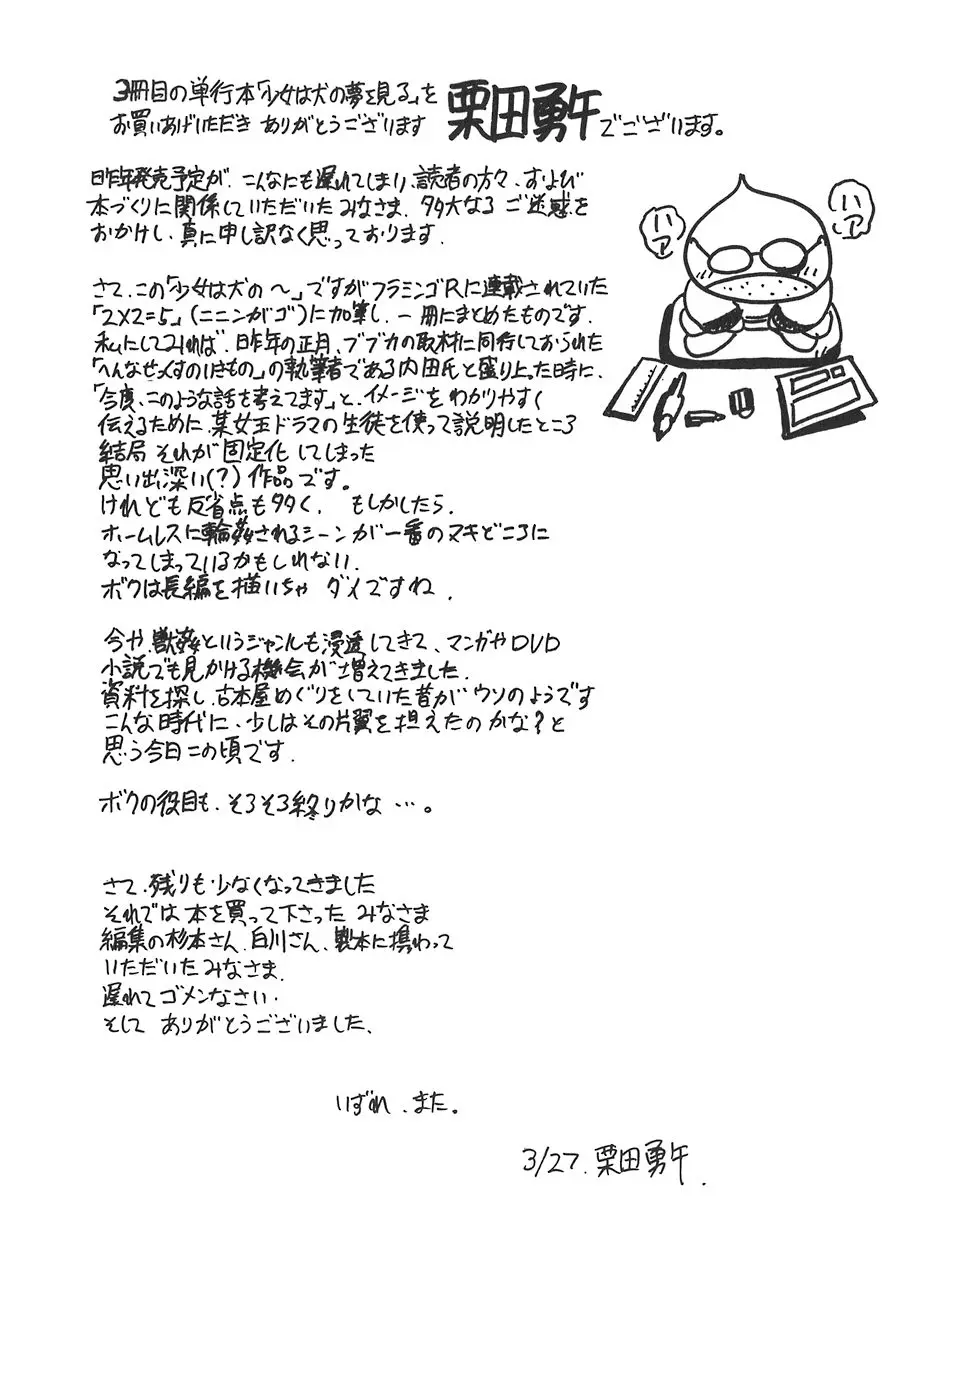 3冊目の単行本「少女は犬の夢を見る」を
お買いあげいただき ありがとうございます
栗田勇午でございます。
ハア
ハア
昨年発売予定が、こんなにも遅れてしまい、読者の方々、および
本づくりに関係していただいたみなさま、多大なるご迷惑を
おかけし、真に申し訳なく思っております。
さて、この「少女は犬の〜」ですがフラミンゴRに連載されていた
「2×2=5」(ニニンがゴ)に加筆し、一冊にまとめたものです。
私にしてみれば、昨年の正月、ブブカの取材に同行しておられた
「へんなせっくすのいきもの」の執筆者である内田氏と盛り上った時に、
「今度、このような話を考えてます」と、イメージをわかりやすく
伝えるために、某女王ドラマの生徒を使って説明したところ
結局 それが固定化してしまった
思い出深い(?)作品です。
けれども反省点も多く、もしかしたら、
ホームレスに輪姦されるシーンが一番のヌキどころに
なってしまっているかもしれない。
ボクは長編を描いちゃ ダメですね。
今や、獣姦というジャンルも浸透してきて、マンガやDVD
小説でも見かける機会が増えてきました。
資料を探し、古本屋めぐりをしていた昔が ウソのようです
こんな時代に、少しはその片翼を担えたのかな?と
思う今日この頃です。
ボクの役目も、そろそろ終りかな…。
さて、残りも少なくなってきました
それでは 本を買って下さった みなさま
編集の杉本さん、白川さん、製本に携わって
いただいたみなさま、
遅れてゴメンなさい。
そして ありがとうございました、
いずれ、また。
3/27. 栗田勇午.